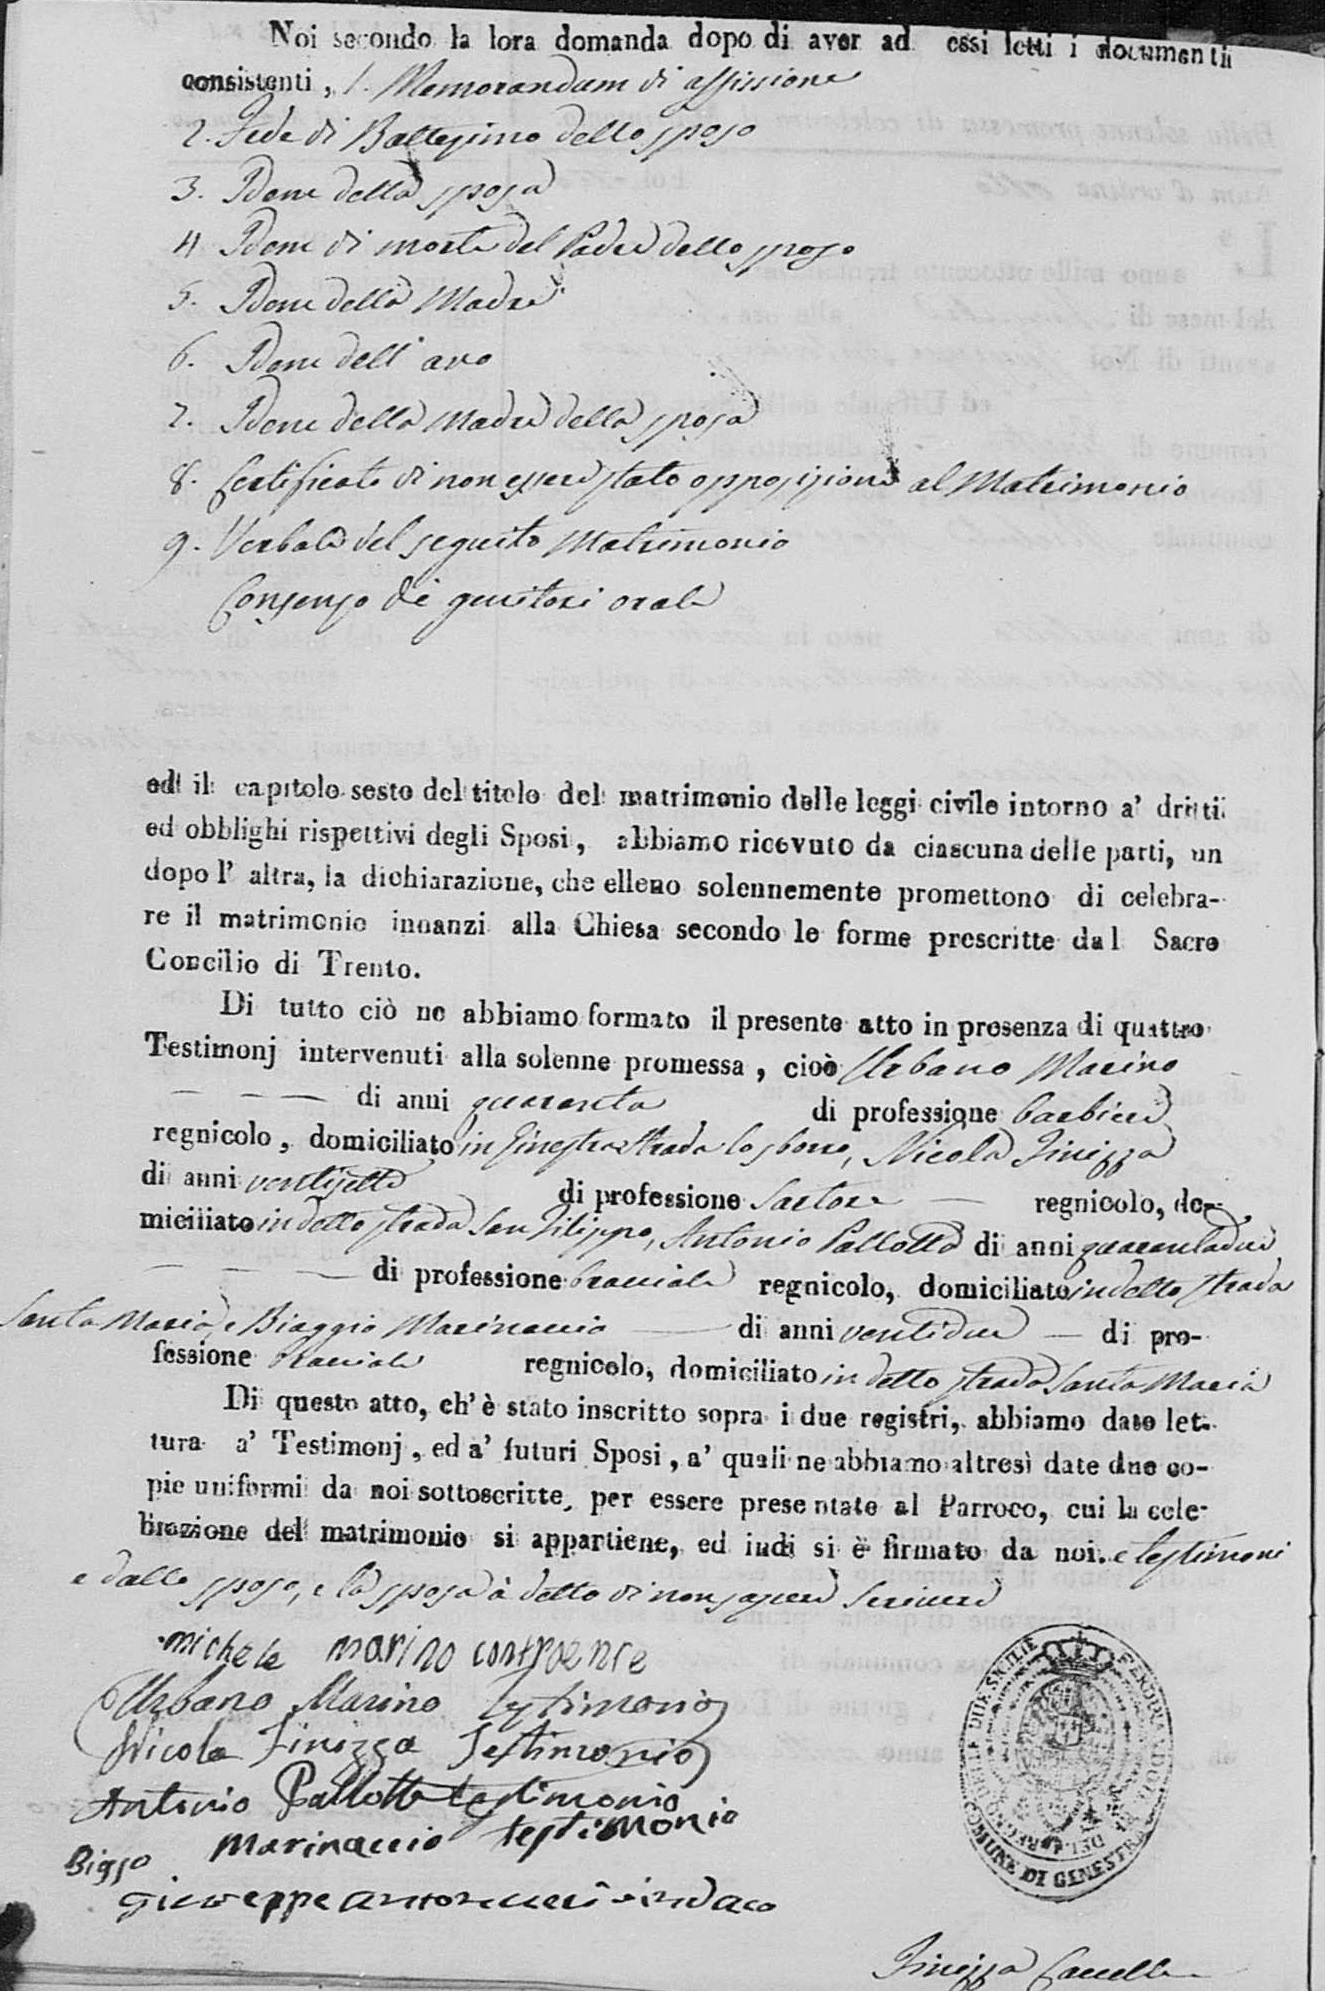 Noi secondo la lora domanda dopo di aver ad essi letti i documenti
consistenti, 1. Memorandum di affissione
2. Fede di Battesimo dello sposo
3. Idem della sposa
4 Idem di morte del Padre dello sposo
5. Idem della Madre
6. Idem dell' avo
7. Idem della Madre della sposa
8. Certificato di non essere stato opposizione al Matrimonio
9. Verbale del seguito Matrimonio
Consenso de genitori orale
ed il capitolo sesto del titolo del matrimonio delle leggi civile intorno a' dritti
ed obblighi rispettivi degli Sposi, abbiamo ricevuto da ciascuna delle parti, un
dopo l' altra, la dichiarazione, che elleno solennemente promettono di celebra-
re il matrimonio innanzi alla Chiesa secondo le forme prescritte dal Sacro
Concilio di Trento.
Di tutto ciò ne abbiamo formato il presente atto in presenza di quattro
Testimonj intervenuti alla solenne promessa, cioè Urbano Marino
di anni quaranta di professione barbiere
regnicolo, domiciliato in Ginestra strada lo sborro, Nicola Finizza
di anni ventisette di professione Sartore regnicolo, do-
miciliato in detto strada San Filippo, Antonio Pallotta di anni quarantadue
di professione bracciale regnicolo, domiciliato in detto strada
Santa Maria, e Biaggio Marinaccio di anni ventidue di pro-
fessione bracciale regnicolo, domiciliato in detto strada Santa Maria
Di questo atto, ch' è stato inscritto sopra i due registri, abbiamo dato let-
tura a' Testimonj, ed a' futuri Sposi, a' quali ne abbiamo altresì date due co-
pie uniformi da noi sottoscritte, per essere presentate al Parroco, cui la cele-
brazione del matrimonio si appartiene, ed indi si è firmato da noi. e testimoni
e dallo sposo, e la sposa à detto di non sapere scrivere
michele marino contraente
Urbano Marino Testimonio
Nicola Finizza Testimonio
Antonio Pallotta testimonio
Marinaccio testimonio
Giuseppe Antonucci sindaco
COMUNE DI GINESTRA
Finizza Cancelle